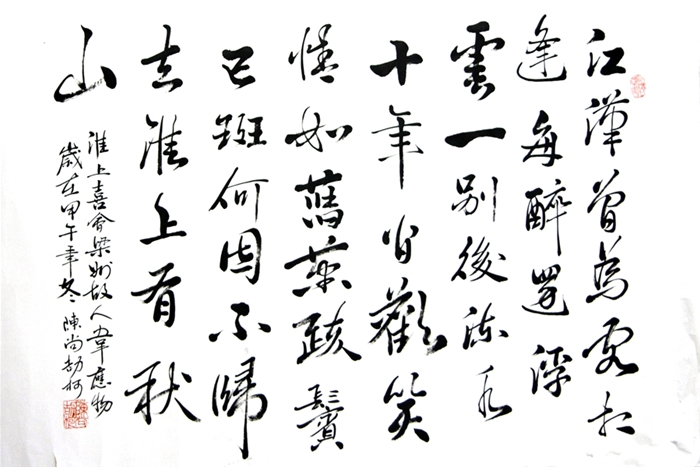 江漢曾為客相
逢每醉還浮
雲一別後流水
十年間歡笑
情如舊蕭疏鬢
已斑何因不歸
去淮上有秋
山
淮上喜會梁州故人韋應物
歲在甲午年冬陳尚